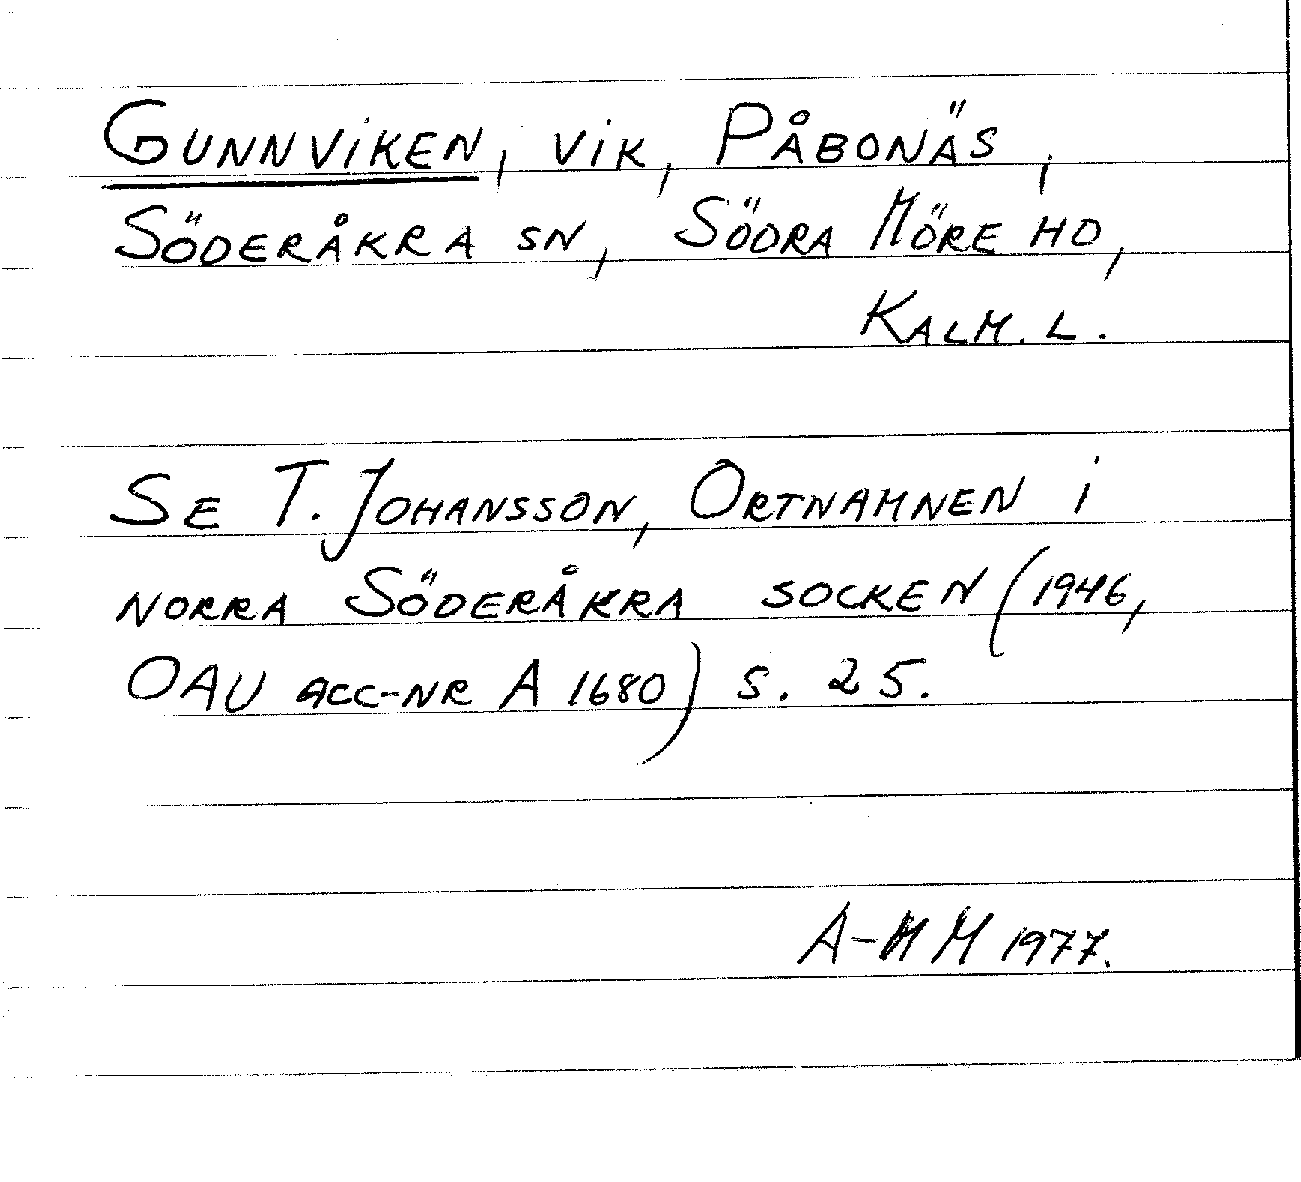 GUNNVIKEN, VIK, PÅBONÄS,
SÖDERÅKRA SN, SÖDRA MÖRE HD,
KALM. L.
SE T. JOHANSSON, ORTNAMNEN I
NORRA SÖDERÅKRA SOCKEN (1946,
OAU ACC-NR A 1680) S. 25.
A-M M 1977.